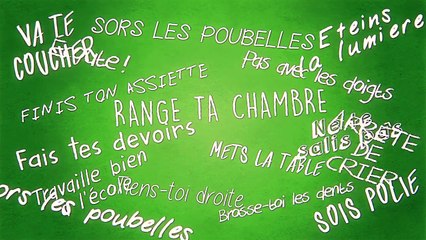 VA TE
COUCHER
SORS LES POUBELLES
Eteins
la
lumiere
Pas avec les doigts
FINIS TON ASSIETTE
RANGE TA CHAMBRE
Fais tes devoirs
METS LA TABLE
salis
DE
CRIER
Travaille bien
l'école
Tiens-toi droite
Brosse-toi les dents
SOIS POLIE
les poubelles